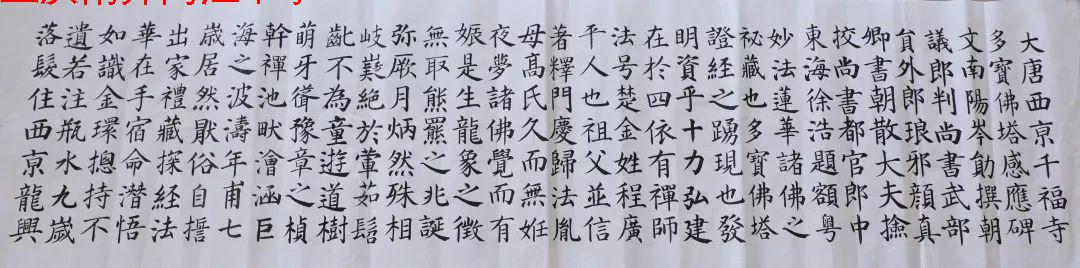 大唐西京千福寺
多寶佛塔感應碑
文南陽岑勛撰朝
議郎判尚書武部
貟外郎琅邪顏真
卿書朝散大夫撿
挍尚書都官郎中
東海徐浩題額粵
妙法蓮華諸佛之
祕藏也多寶佛塔
證經之踴現也發
明資乎十力弘建
在於四依有禪師
法号楚金姓程廣
平人也祖父並信
著釋門慶歸法胤
母髙氏久而無姙
夜夢諸佛覺而有
娠是生龍象之徵
無取熊羆之兆誕
弥厥月炳然殊相
岐嶷絕於葷茹髫
齓不為童遊道樹
萌牙聳豫章之楨
幹禪池畎澮涵巨
海之波濤年甫七
歲居然猒俗自誓
出家禮藏探經法
華在手宿命潛悟
如識金環摠持不
遺若注瓶水九歲
落髮住西京龍興